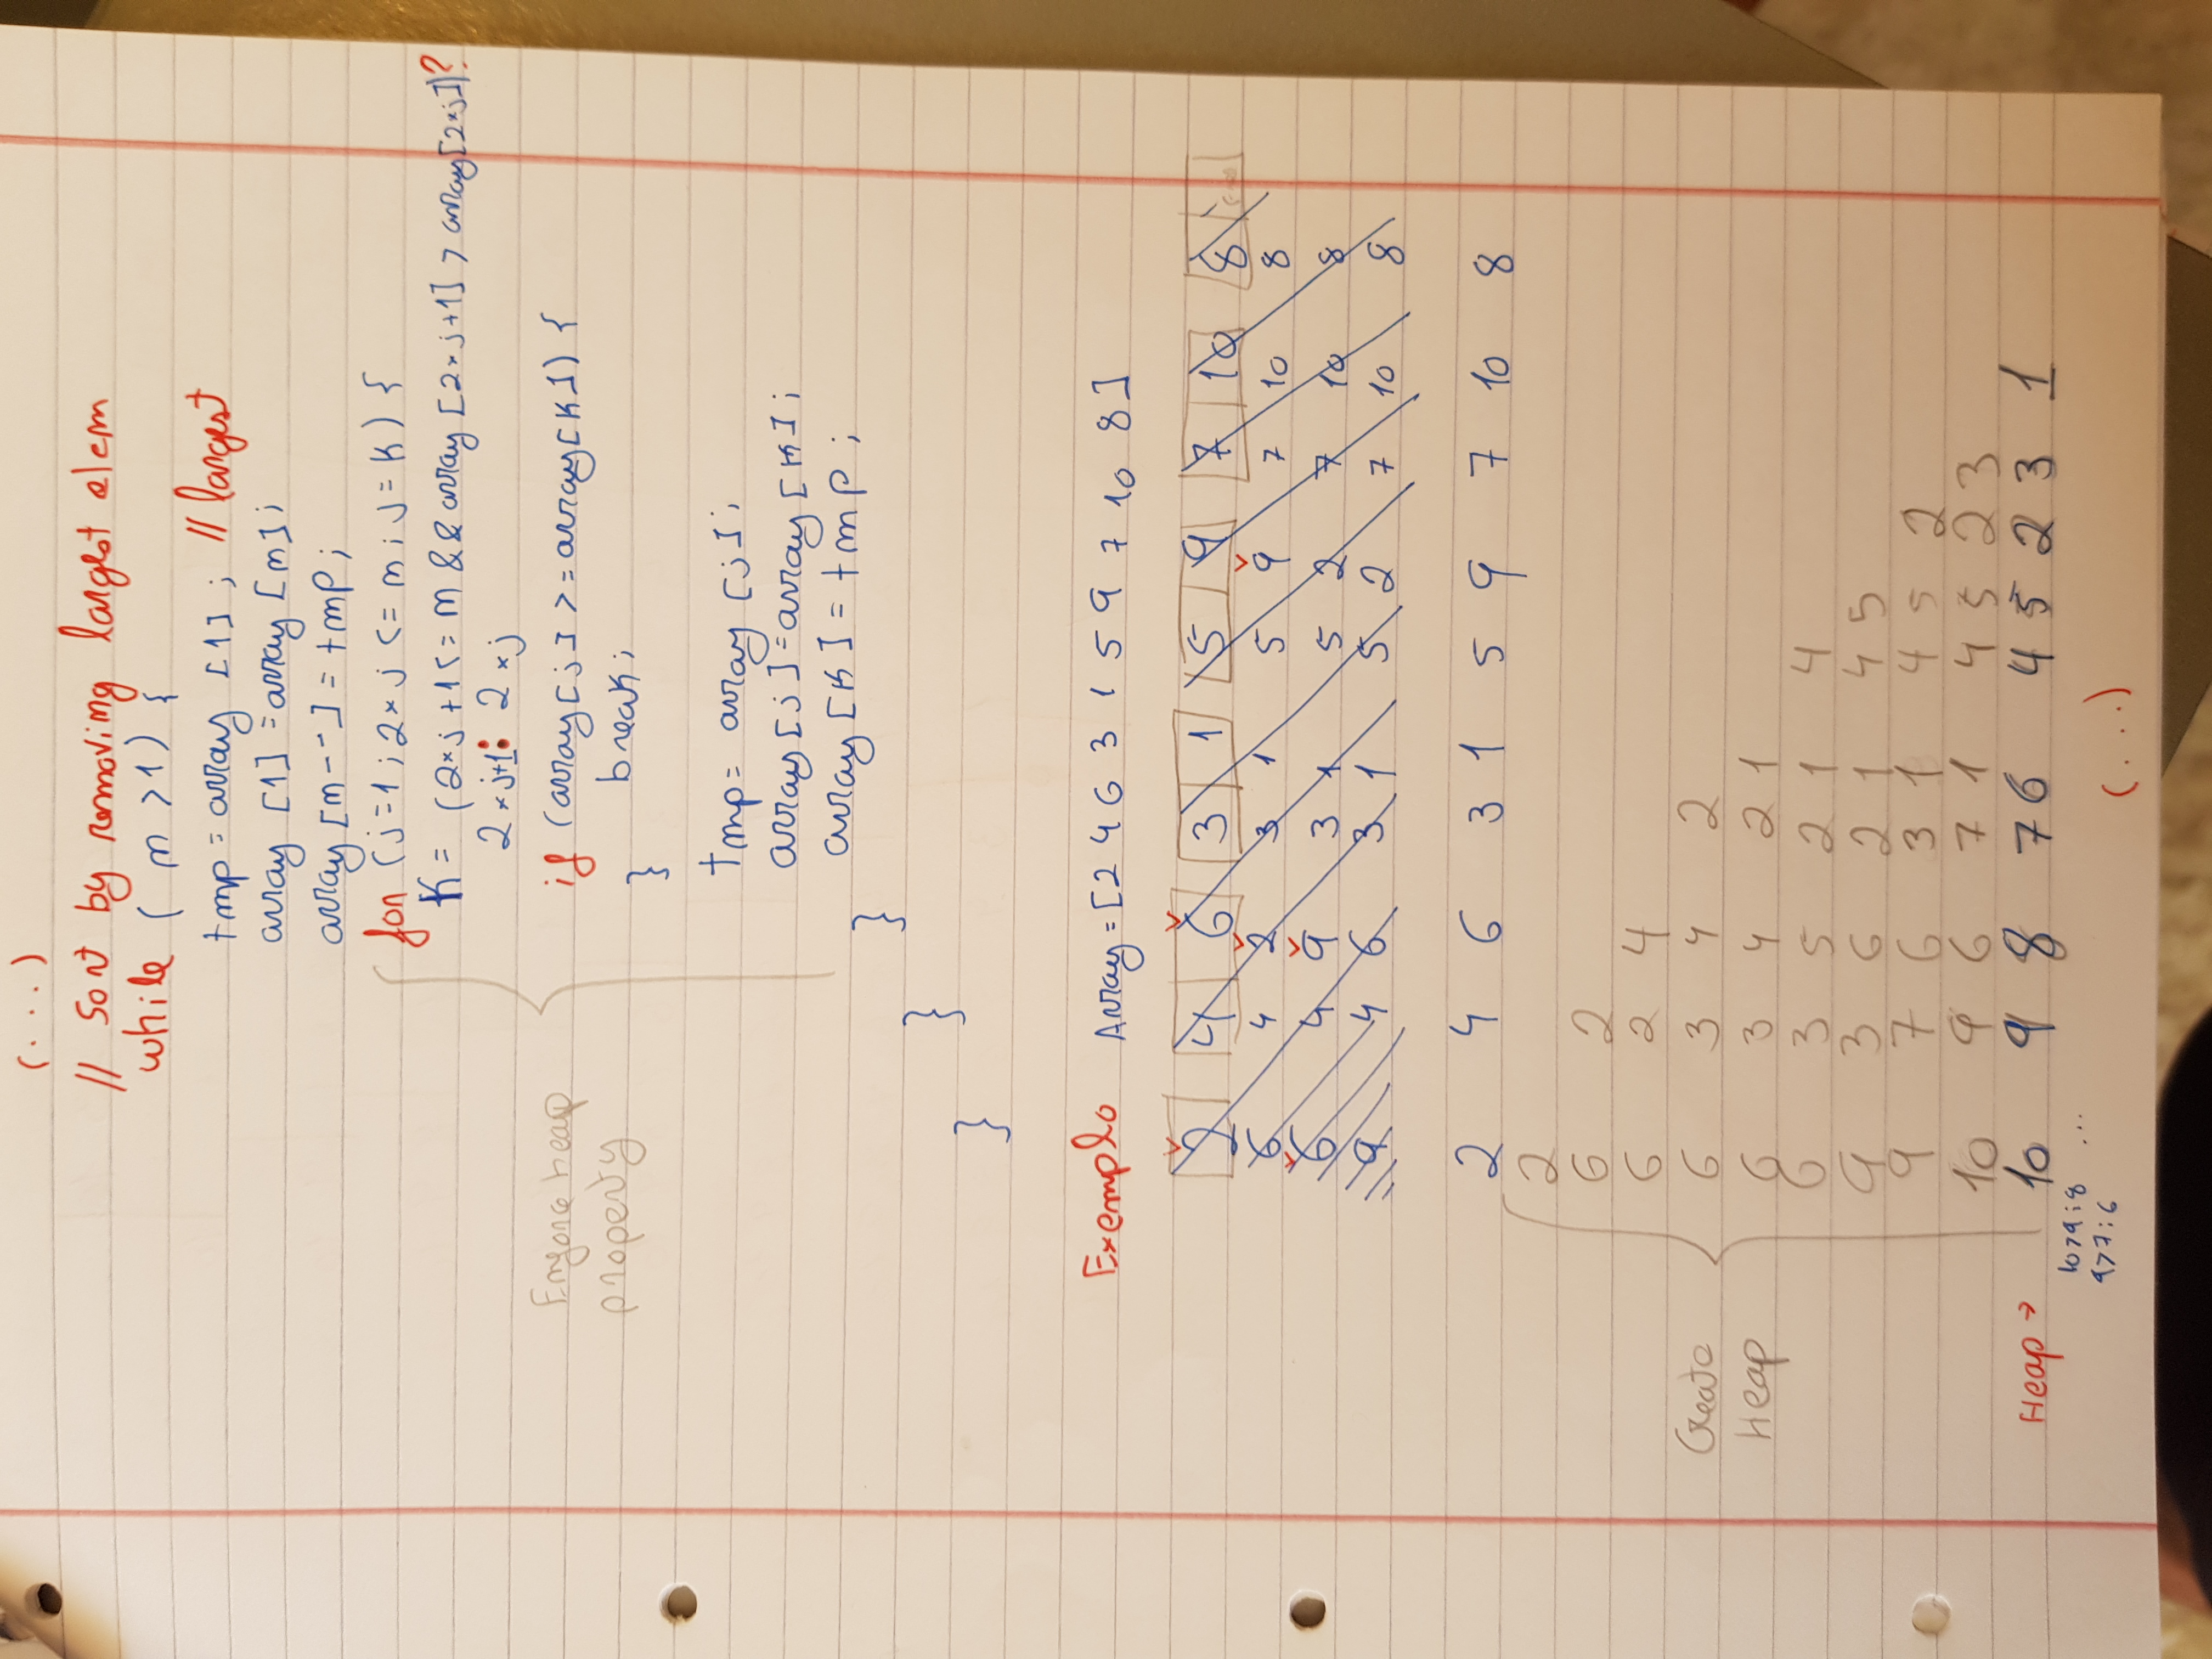 (...)
// Sort by removing largest elem
while ( m > 1 ) {
tmp = array [1] ; // largest
array [1] = array [m] ;
array [m--] = tmp ;
for ( j = 1 ; 2 * j <= m ; j = K ) {
K = ( 2*j + 1 <= m && array [2*j+1] > array [2*j] ) ?
2 * j+1 : 2 * j
Enforce heap
property
if ( array [j] >= array [K] ) {
break ;
}
tmp = array [j] ;
array [j] = array [K] ;
array [K] = tmp ;
}
}
}
Exemplo Array = [2 4 6 3 1 5 9 7 10 8]
2 4 6 3 1 5 9 7 10 8
6 4 2 3 1 5 9 7 10 8
6 4 9 3 1 5 2 7 10 8
9 4 6 3 1 5 2 7 10 8
2 4 6 3 1 5 9 7 10 8
2
6 2
6 2 4
Create
Heap
6 3 4 2
6 3 4 2 1
6 3 5 2 1 4
9 3 6 2 1 4 5
9 7 6 3 1 4 5 2
10 9 6 7 1 4 5 2 3
Heap → 10 9 8 7 6 4 5 2 3 1
10>9;8 ...
9>7;6
(...)